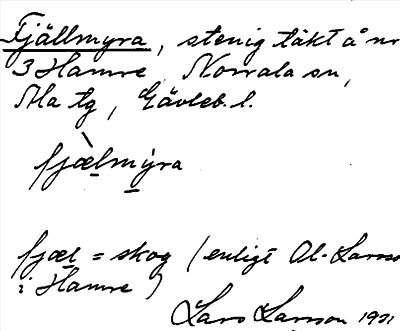 Fjällmyra, stenig täkt å nr
3 Hamre, Norrala sn,
Ma tg, Gävleb. l.
fjæ̀lmýra
fjæl = skog (enligt Ol-Larss
i Hamre)
Lars Larsson 1931